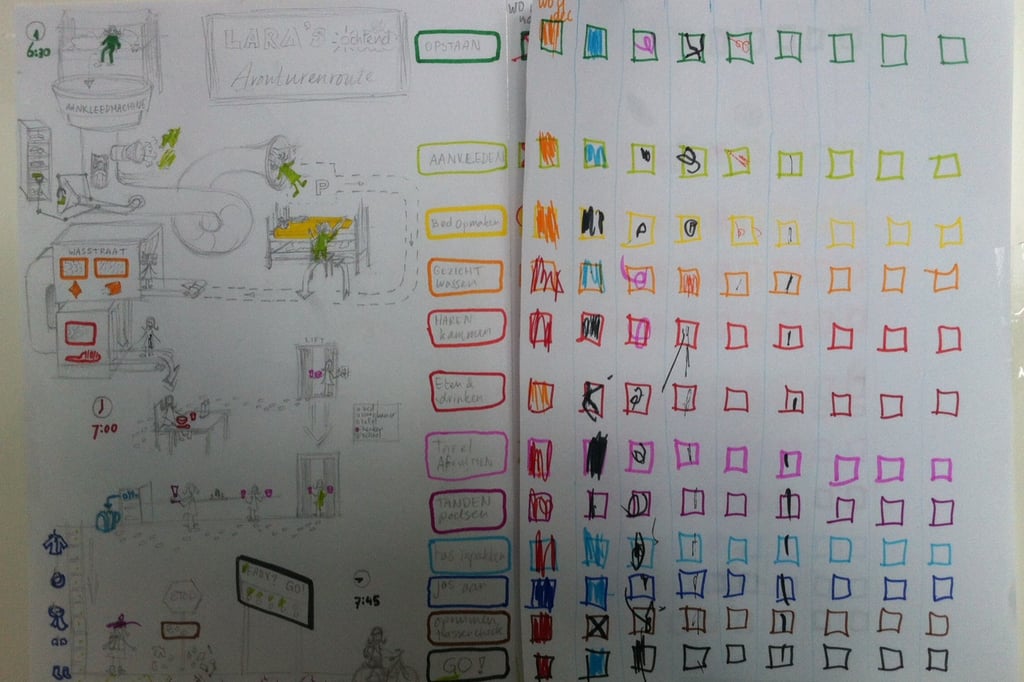 6:30
LARA'S ochtend
Avonturenroute
AANKLEEDMACHINE
P
WASSTRAAT
LIFT
7:00
STOP
READY? GO!
7:45
OPSTAAN
AANKLEDEN
Bed opmaken
GEZICHT
wassen
HAREN
kammen
Eten &
drinken
TAFEL
AFRUIMEN
TANDEN
poetsen
tas inpakken
jas aan
GO!